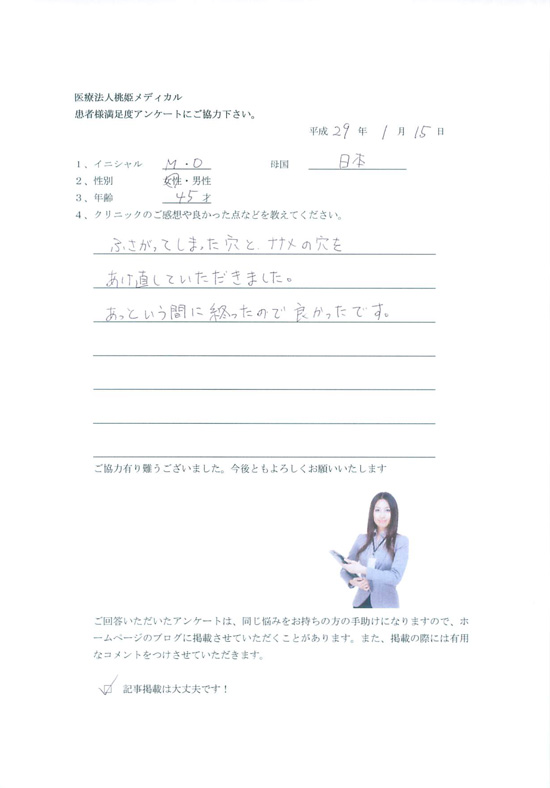 医療法人桃姫メディカル
患者様満足度アンケートにご協力下さい。
平成 29 年 1 月 15 日
1、イニシャル M・O 母国 日本
2、性別 女性・男性
3、年齢 45才
4、クリニックのご感想や良かった点などを教えてください。
ふさがってしまった穴と、ナナメの穴を
あけ直していただきました。
あっという間に終ったので良かったです。
ご協力有り難うございました。今後ともよろしくお願いいたします
ご回答いただいたアンケートは、同じ悩みをお持ちの方の手助けになりますので、ホ
ームページのブログに掲載させていただくことがあります。また、掲載の際には有用
なコメントをつけさせていただきます。
記事掲載は大丈夫です！